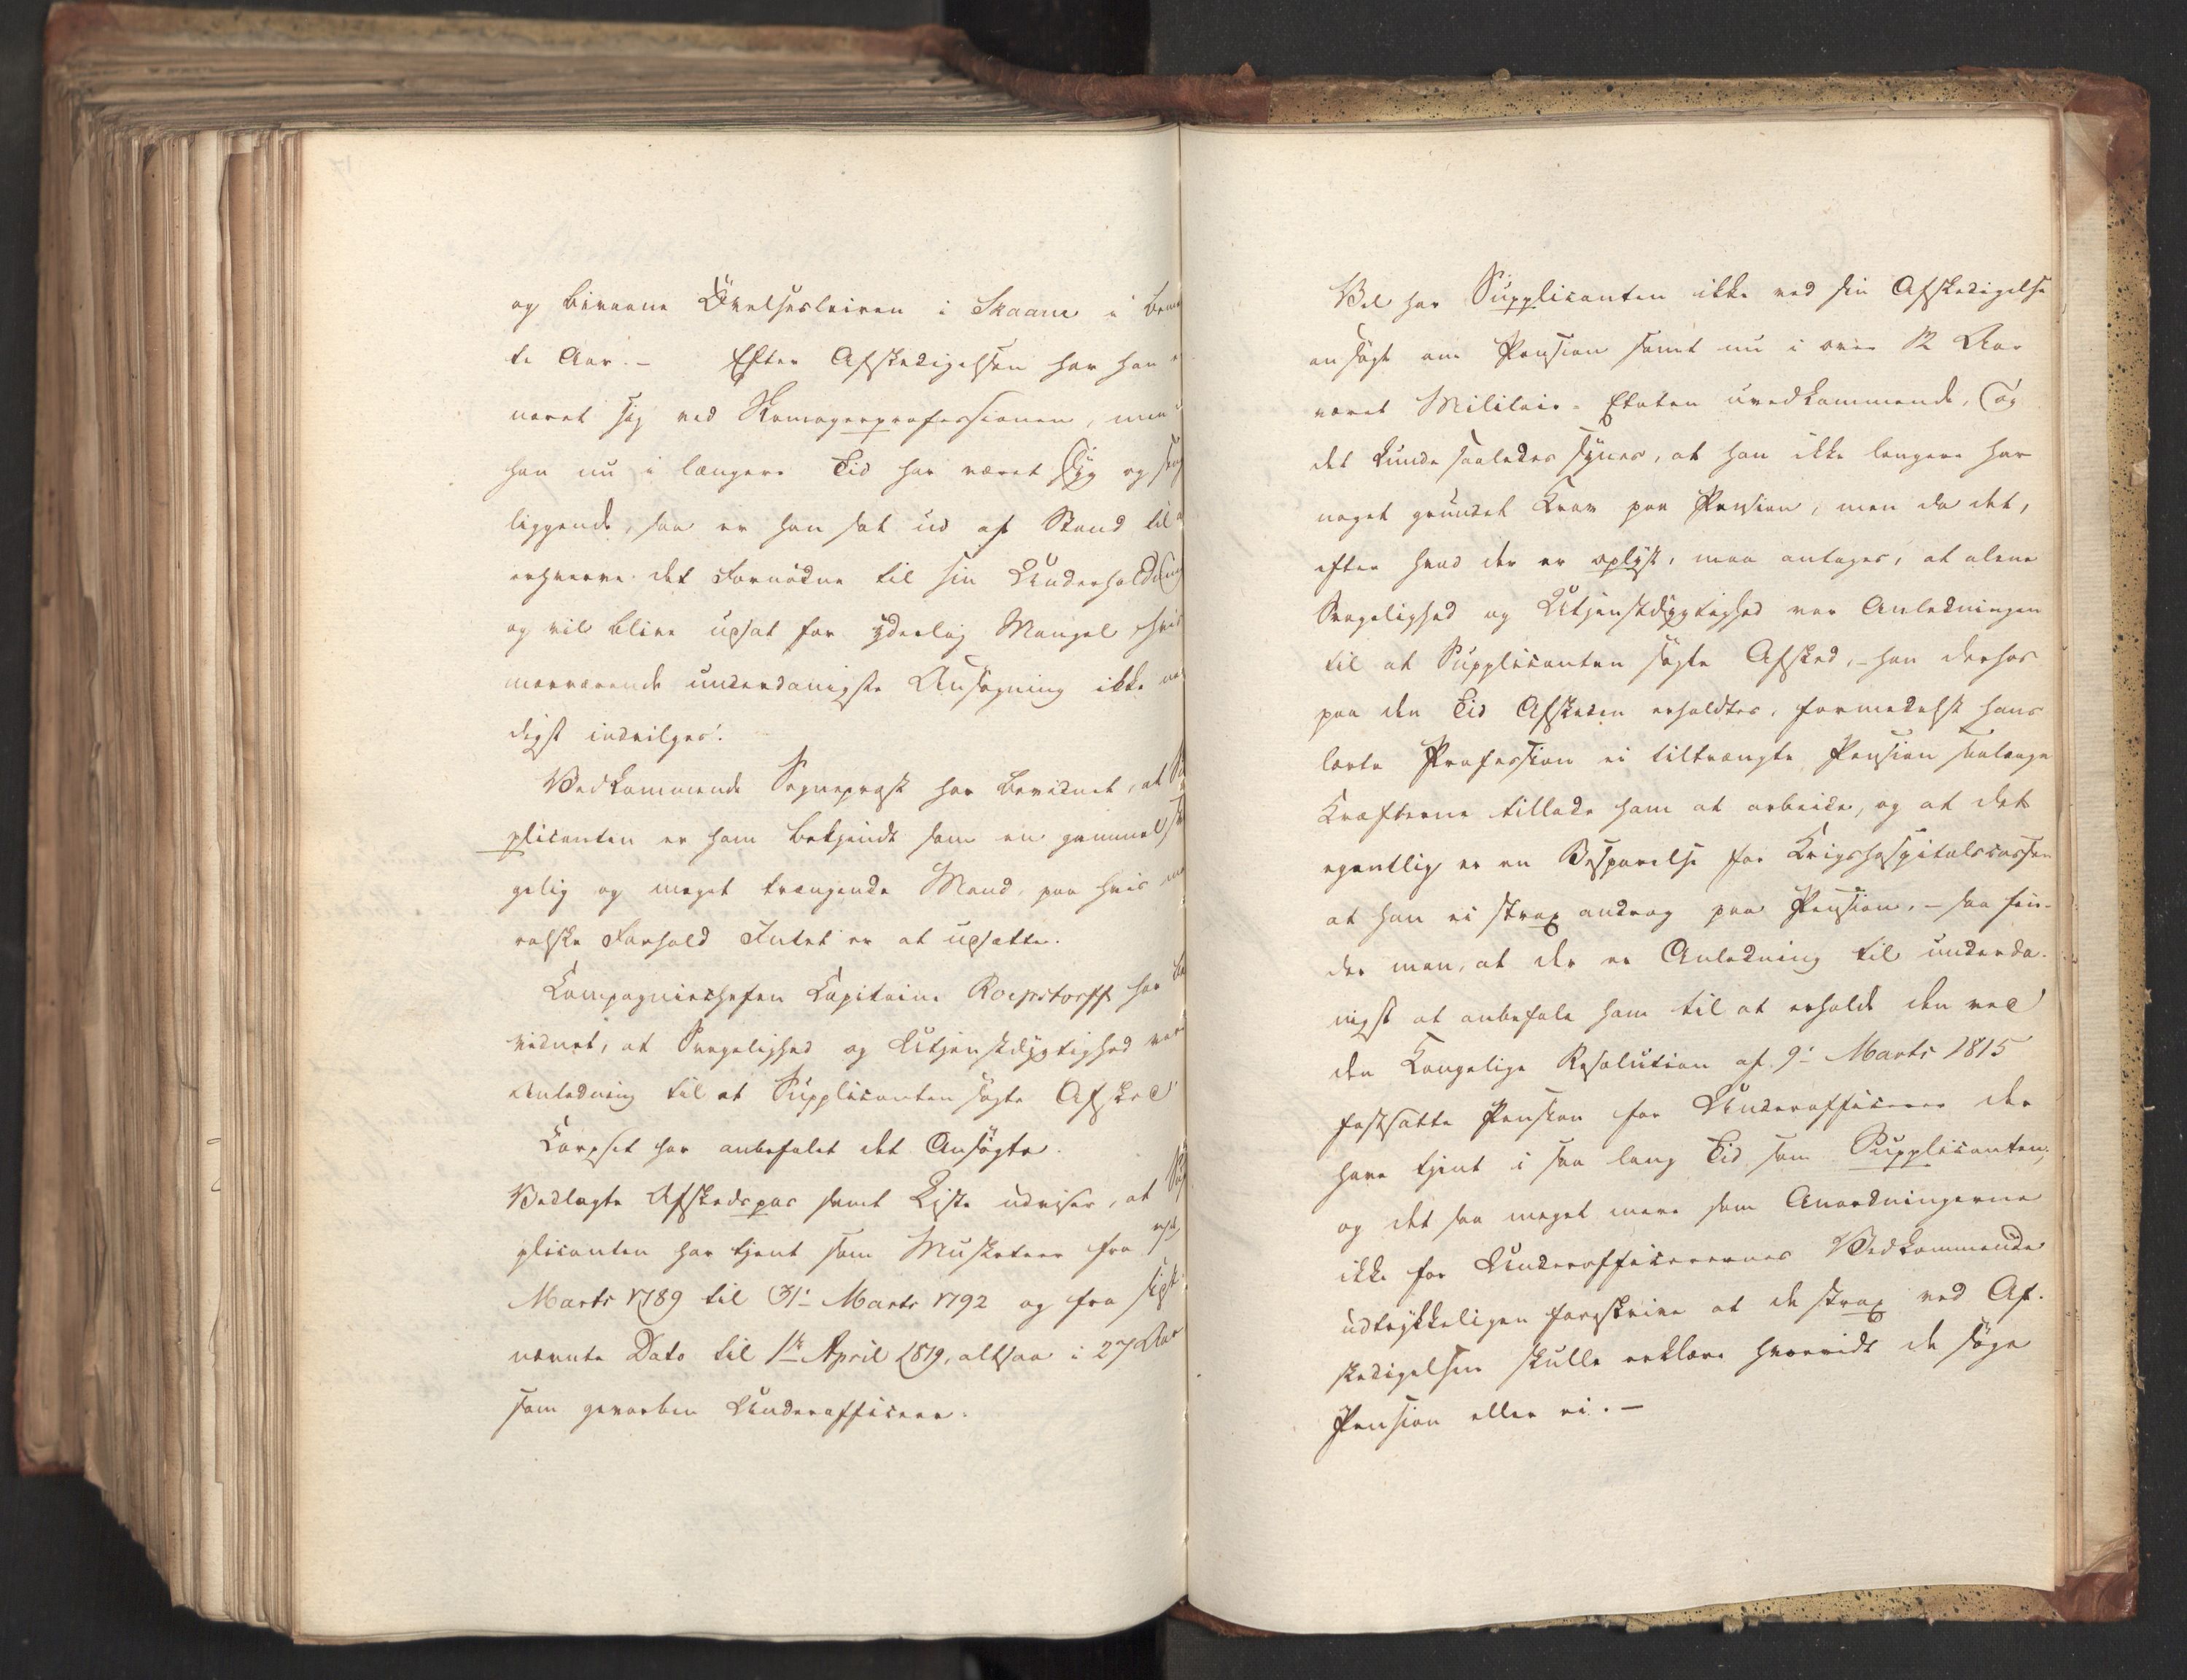 og bivaane Øvelsesleiren i Skaane i
te Aar. – Efter Afskedigelsen har han
næret sig ved Skomagerprofessionen, men
han nu i længere Tid har været syg og
liggende, saa er han sat ud af Stand til
erhverve det Fornødne til sin Underholdning
og vil blive udsat for yderlig Mangel, hvis
nærværende underdanigste Ansøgning ikke
digst indvilges.
Vedkommende Sognepræst har bevidnet, at
plicanten er ham bekjendt som en gammel
gelig og meget trængende Mand, paa hvis
ralske Forhold Intet er at udsætte.
Compagniechefen Capitaine Roepstorff har
vidnet, at Svagelighed og Utjenstdygtighed var
Anledning til at Supplicanten søgte Afsked
Corpset har anbefalet det Ansøgte.
Vedlagte Afskedspas samt Liste udviser, at
plicanten har tjent som Musketeer fra
Marts 1789 til 31. Marts 1792 og fra sidst
nævnte Dato til 1ste April 1819, altsaa i 27 Aar
som geworben Underofficeer.
Vel har Supplicanten ikke ved sin Afskedigelse
ansøgt om Pension samt nu i over 12 Aar
været Militair-Etaten uvedkommende, og
det kunde saaledes synes, at han ikke længere har
noget grundet Krav paa Pension, men da det,
efter hvad der er oplyst, maa antages, at alene
Svagelighed og Utjenstdygtighed var Anledningen
til at Supplicanten søgte Afsked, – han derhos
paa den Tid Afskeden erholdtes, formedelst hans
lærte Profession ei tiltrængte Pension saalænge
Kræfterne tillode ham at arbeide, og at det
egentlig er en Besparelse for Krigshospitalscassen
at han ei strax androg paa Pension, – saa fin-
der man, at der er Anledning til underda-
nigst at anbefale ham til at erholde den ved
den Kongelige Resolution af 9. Marts 1815
fastsatte Pension for Underofficerer der
have tjent i saa lang Tid som Supplicanten,
og det saa meget mere som Anordningerne
ikke for Underofficerernes Vedkommende
udtrykkeligen foreskrive at de strax ved Af-
skedigelsen skulle erklære hvorvidt de søge
Pension eller ei. –